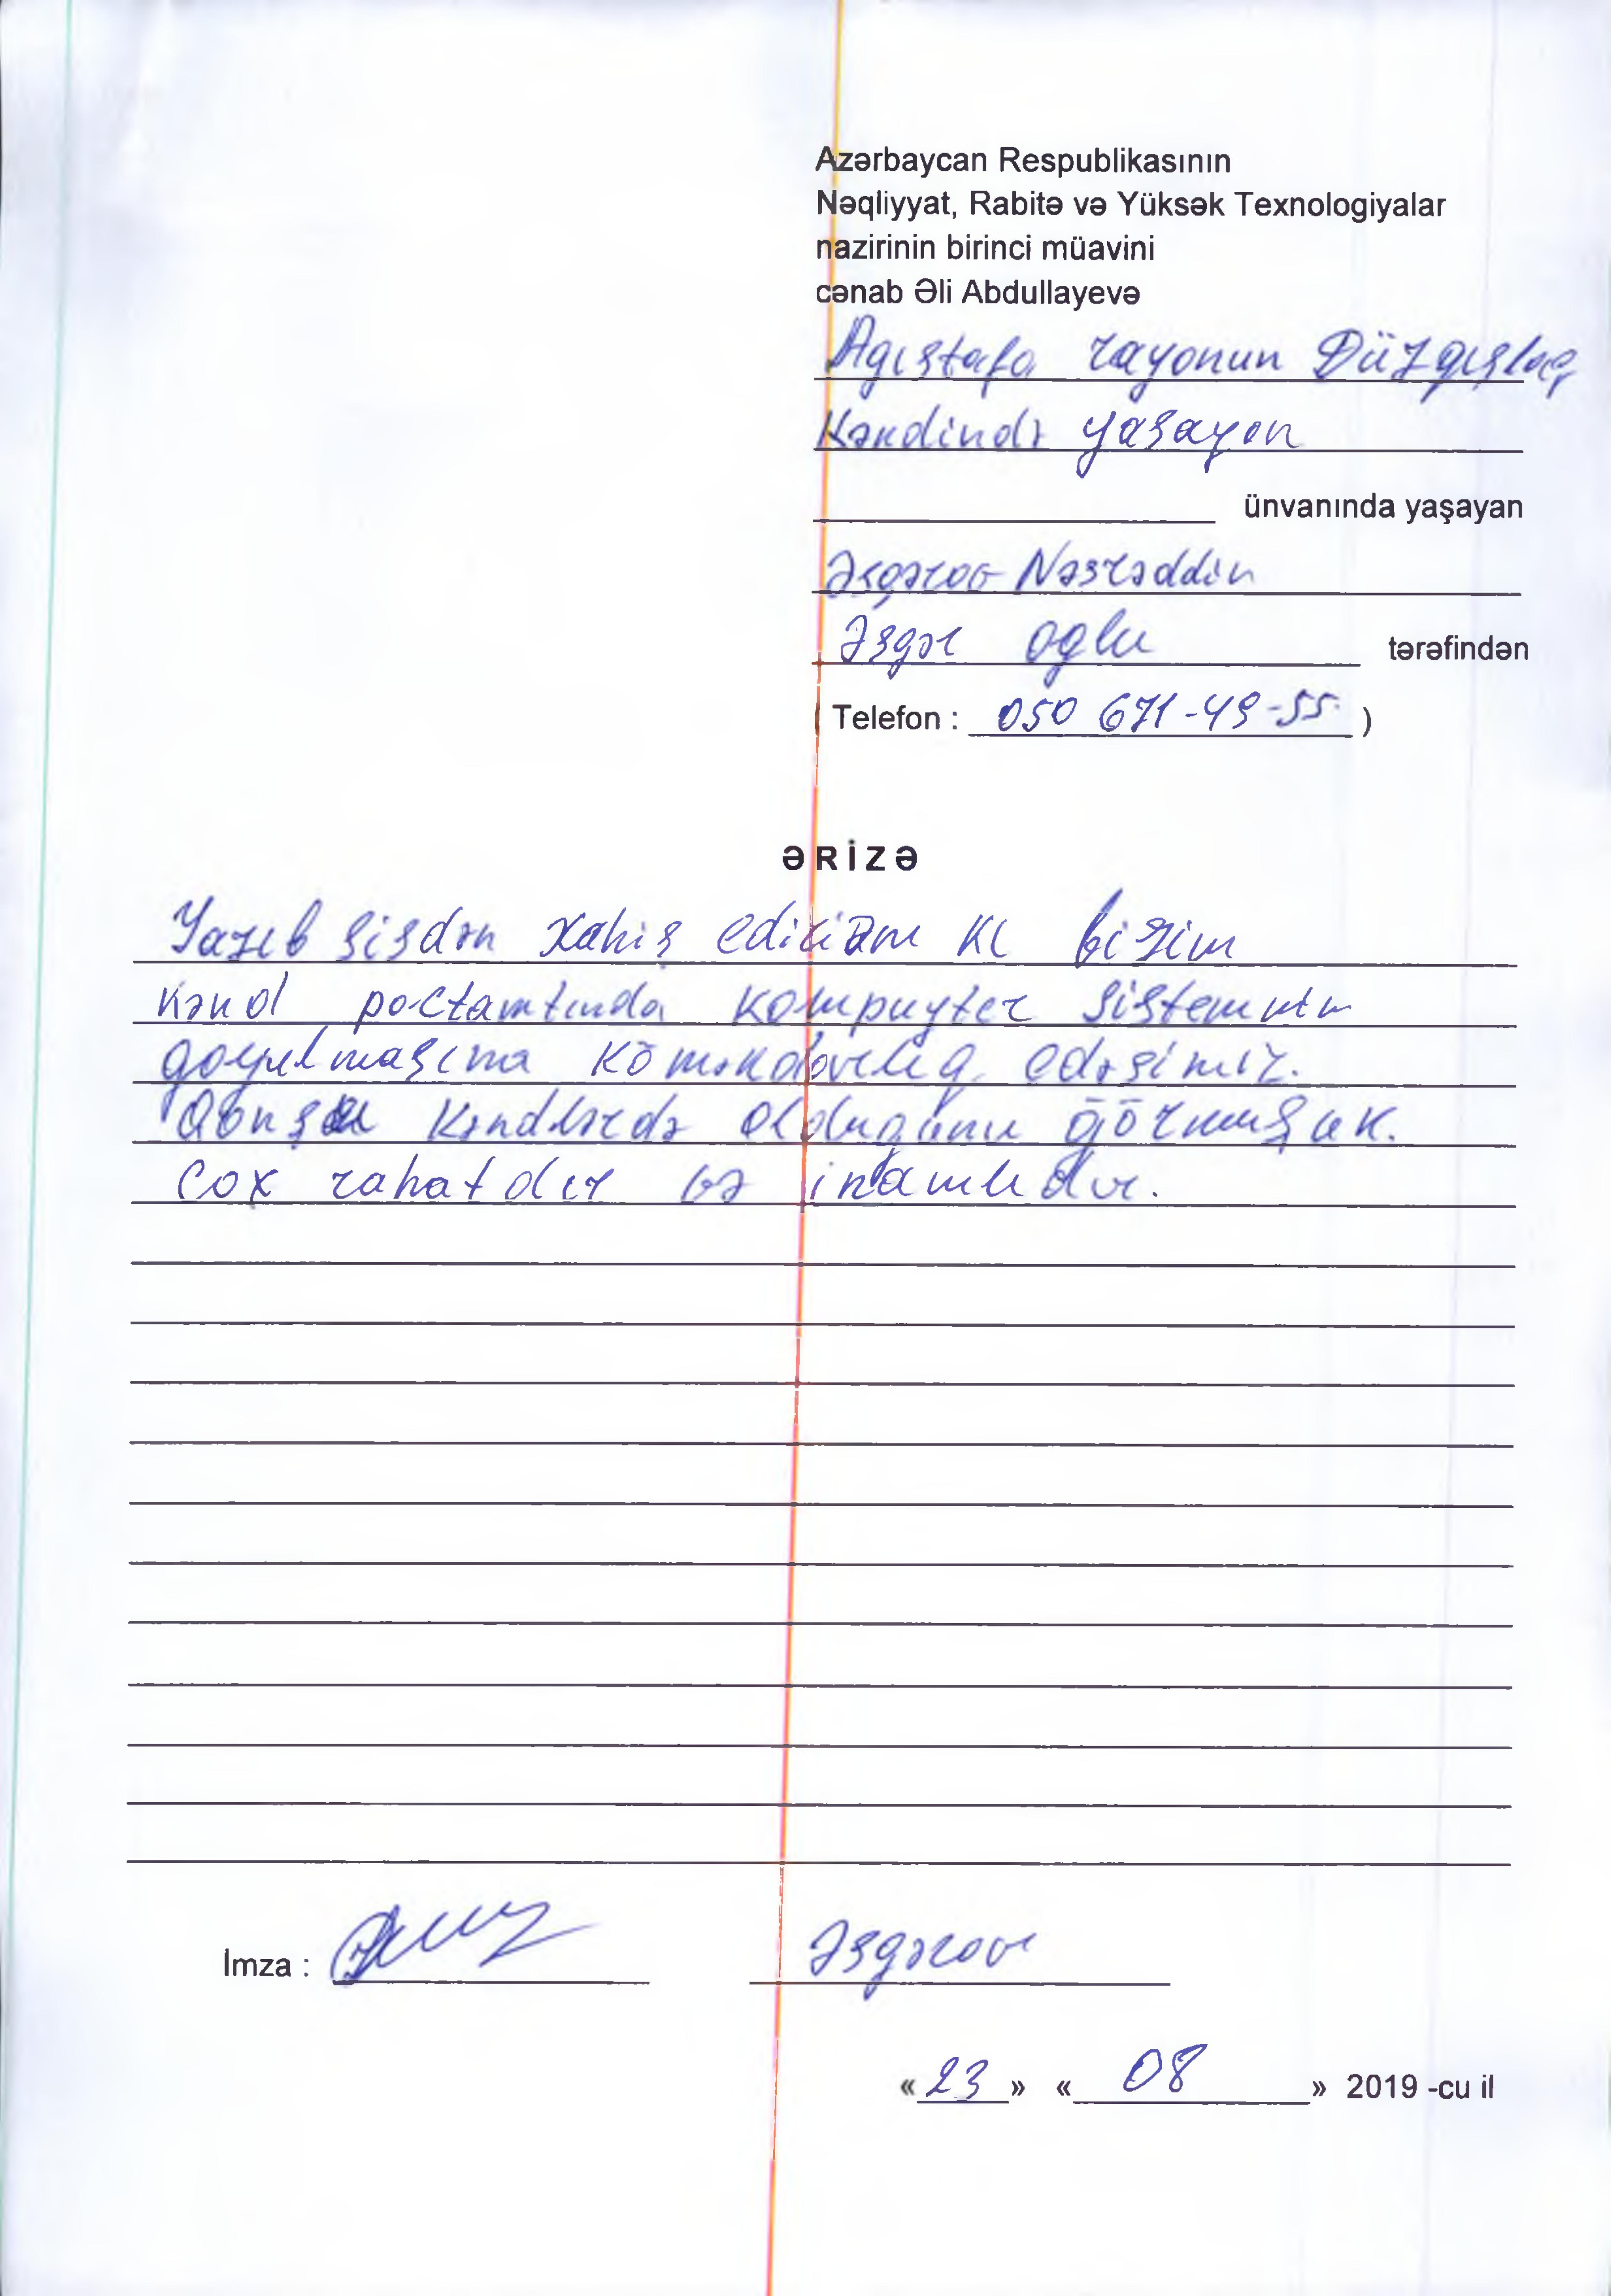 Azərbaycan Respublikasının
Nəqliyyat, Rabitə və Yüksək Texnologiyalar
nazirinin birinci müavini
cənab Əli Abdullayevə
Agıstafa rayonun Düzgışlag
Kəndində yaşayan
ünvanında yaşayan
Əsgərov Nəsrəddin
Əsgər oglu tərəfindən
( Telefon : 050 671-49-55 )
ƏRİZƏ
Yazıb sizdən xahiş edirəm ki bizim
kənd poctamtında kompuyter sistemin
goyulmasına köməkdarlıg edəsiniz.
Qonşu kəndlərdə oldugunu görmuşuk.
Cox rahatdır və inamlıdır.
İmza : Əsgərov
« 23 » « 08 » 2019 -cu il